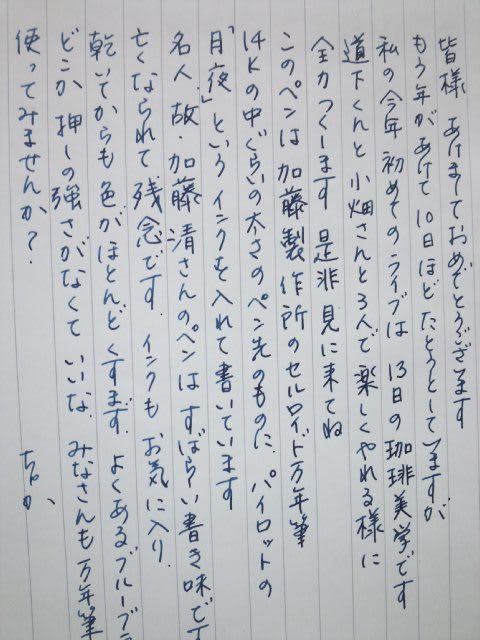 皆様 あけましておめでとうございます
もう年があけて 10日ほどたとうとしていますが
私の今年 初めてのライブは 13日の珈琲美学です
道下くんと 小畑さんと3人で 楽しくやれる様に
全力つくします 是非 見に来てね
このペンは 加藤製作所のセルロイド万年筆
14Kの中ぐらいの太さのペン先のものに、パイロットの
「月夜」という インクを入れて書いています
名人 故・加藤清さんのペンは すばらしい書き味です
亡くなられて 残念です. インクも お気に入り.
乾いてからも 色がほとんどくすまず. よくあるブルーブラ
どこか 押しの強さがなくて いいな. みなさんも 万年筆
使ってみませんか?
ちか